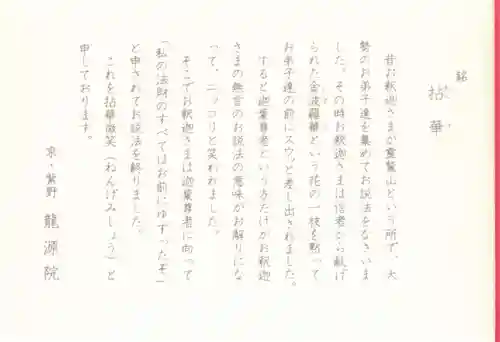 銘
拈華
昔お釈迦さまが霊鷲山という所で、大
勢のお弟子達を集めてお説法をなさいま
した。その時お釈迦さまは信者から献げ
られた金波羅華という花の一枝を黙って
お弟子達の前にスウッと差し出されました。
すると迦葉尊者という方だけがお釈迦
さまの無言のお説法の意味がお解りにな
って、ニッコリと笑われました。
そこでお釈迦さまは迦葉尊者に向って
「私の法財のすべてはお前にゆずったぞ」
と申されてお説法を終りました。
これを拈華微笑(ねんげみしょう)と
申しております。
京・紫野 龍源院